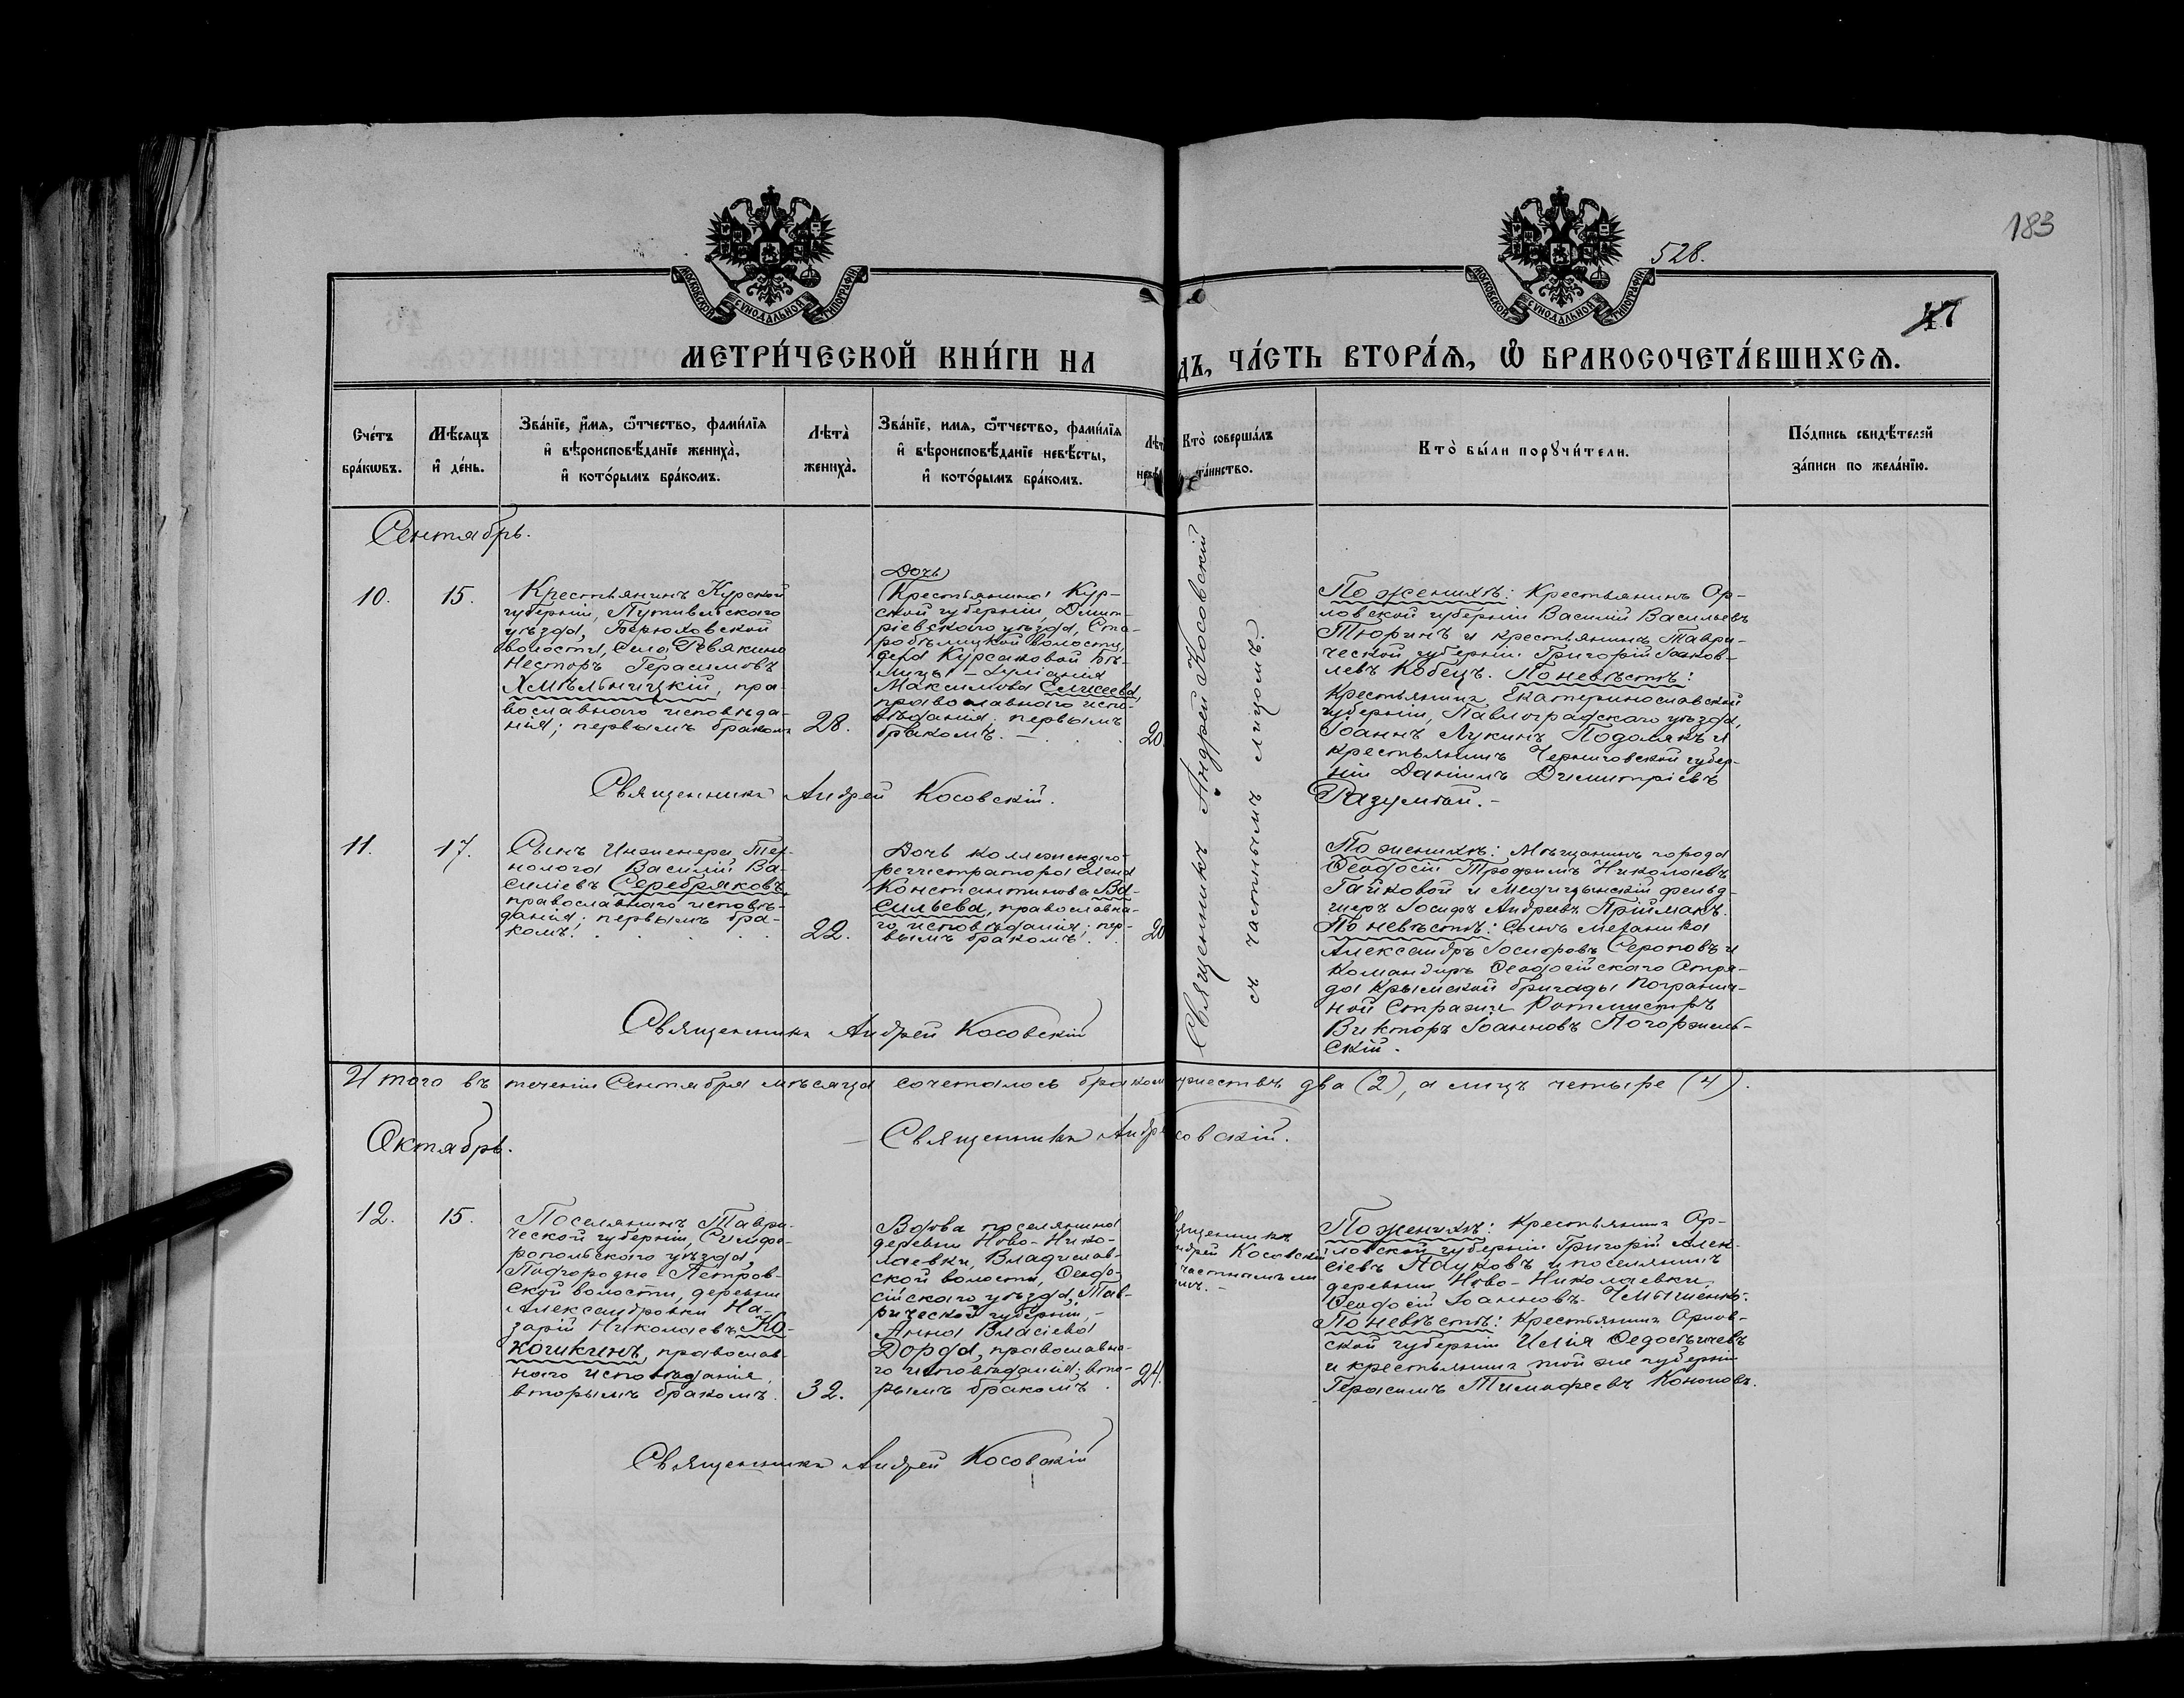 183
528.
47
МОСКОВСКОЙ СѴНОДАЛЬНОЙ ТИПОГРАФІИ
МОСКОВСКОЙ СѴНОДАЛЬНОЙ ТИПОГРАФІИ
МЕТРИ́ЧЕСКОЙ КНИ́ГИ НА
ДЪ, ЧА́СТЬ ВТОРА́Ѧ, Ѡ БРАКОСОЧЕТА́ВШИХСѦ.
Сче́тъ бра́кѡвъ.
Мѣ́сяцъ и҆ де́нь.
Зва́нїе, и҆́мя, ѻ҆́тчество, фами́лїя
и҆ вѣроисповѣ́данїе жениха̀,
и҆ кото́рымъ бра́комъ.
Лѣта̀ жениха̀.
Зва́нїе, имя, ѻ҆́тчество, фами́лїя
и҆ вѣроисповѣ́данїе невѣ́сты,
и҆ кото́рымъ бра́комъ.
Кто̀ соверша́лъ
та́инство.
Кто̀ бы́ли порꙋчи́тели.
По́дпись свидѣ́телей
за́писи по жела́нїю.
Сентябрь.
10.
15.
Крестьянинъ Курской
губерніи, Путивльскаго
уѣзда, Берюховской
волости, села Ревякина
Несторъ Герасимовъ
Хмѣльницкій, пра-
вославнаго исповѣда-
нія; первымъ бракомъ
28.
Дочь
Крестьянина Кур-
ской губерніи, Дмит-
ріевскаго уѣзда, Ста-
робѣлицкой волости,
дера Курсаковой Бѣ-
лицы –
Максимова Елисеева,
православнаго испо-
вѣданія; первымъ
бракомъ. –
20.
Священникъ Андрей Косовскій
съ частнымъ лицомъ.
По женихѣ: Крестьянинъ Ор-
ловской губерніи Василій Васильевъ
Тюринъ и крестьянинъ Таври-
ческой губерніи Григорій Іаков-
левъ Кобецъ. По невѣстѣ:
Крестьянинъ Екатеринославской
губерніи, Павлоградскаго уѣзда,
Іоаннъ Лукинъ Подолякъ и
крестьянинъ Черниговской губер-
ніи Даніилъ Димитріевъ
Разумный. –
Священникъ Андрей Косовскій.
11.
17.
Сынъ Инженера Тех-
нолога Василій Ва-
силіевъ Серебряковъ
православнаго исповѣ-
данія; первымъ бра-
комъ.
22.
Дочь коллежскаго
регистратора Елена
Константинова Ва-
сильева, православна-
го исповѣданія; пер-
вымъ бракомъ.
20
По женихѣ: Мѣщанинъ города
Ѳеодосіи Трофимъ Николаевъ
Гайковой и Медицинскій фельд-
шеръ Іосифъ Андреевъ Прійманъ.
По невѣстѣ: Сынъ механика
Александръ Іосифовъ Серополъ и
Командиръ Ѳеодосійскаго Отря-
да Крымской бригады Погранич-
ной Стражи Ротмистръ
Викторъ Іоанновъ Погоржель-
скій.
Священникъ Андрей Косовскій
Итого въ теченіи Сентября мѣсяца сочеталось бракомъ два (2), а лицъ четыре (4).
Священникъ Андр совскій.
Октябрь.
12.
15.
Поселянинъ Таври-
ческой губерніи, Симфе-
ропольскаго уѣзда,
Подгородне-Петров-
ской волости, деревни
Александровки На-
зарій Николаевъ Ко-
кошкинъ, православ-
наго исповѣданія,
вторымъ бракомъ.
32.
Вдова поселянина
деревни Ново-Нико-
лаевки, Владислав-
ской волости, Ѳеодо-
сійскаго уѣзда, Тав-
рической губерніи, –
Анна Власіева
Дорда, православна-
го исповѣданія; вто-
рымъ бракомъ.
24.
Косовскій
По женихѣ: Крестьянинъ Ор-
ловской губерніи Григорій Алек-
сіевъ Адуковъ и поселянинъ
деревни Ново-Николаевки
Ѳеодосій Іоанновъ Чмышенко.
По невѣстѣ: Крестьянинъ Орлов-
ской губерніи Илія Ѳедосѣичевъ
и крестьянинъ той же губерніи
Герасимъ Тимофеевъ Кононовъ.
Священникъ Андрей Косовскій